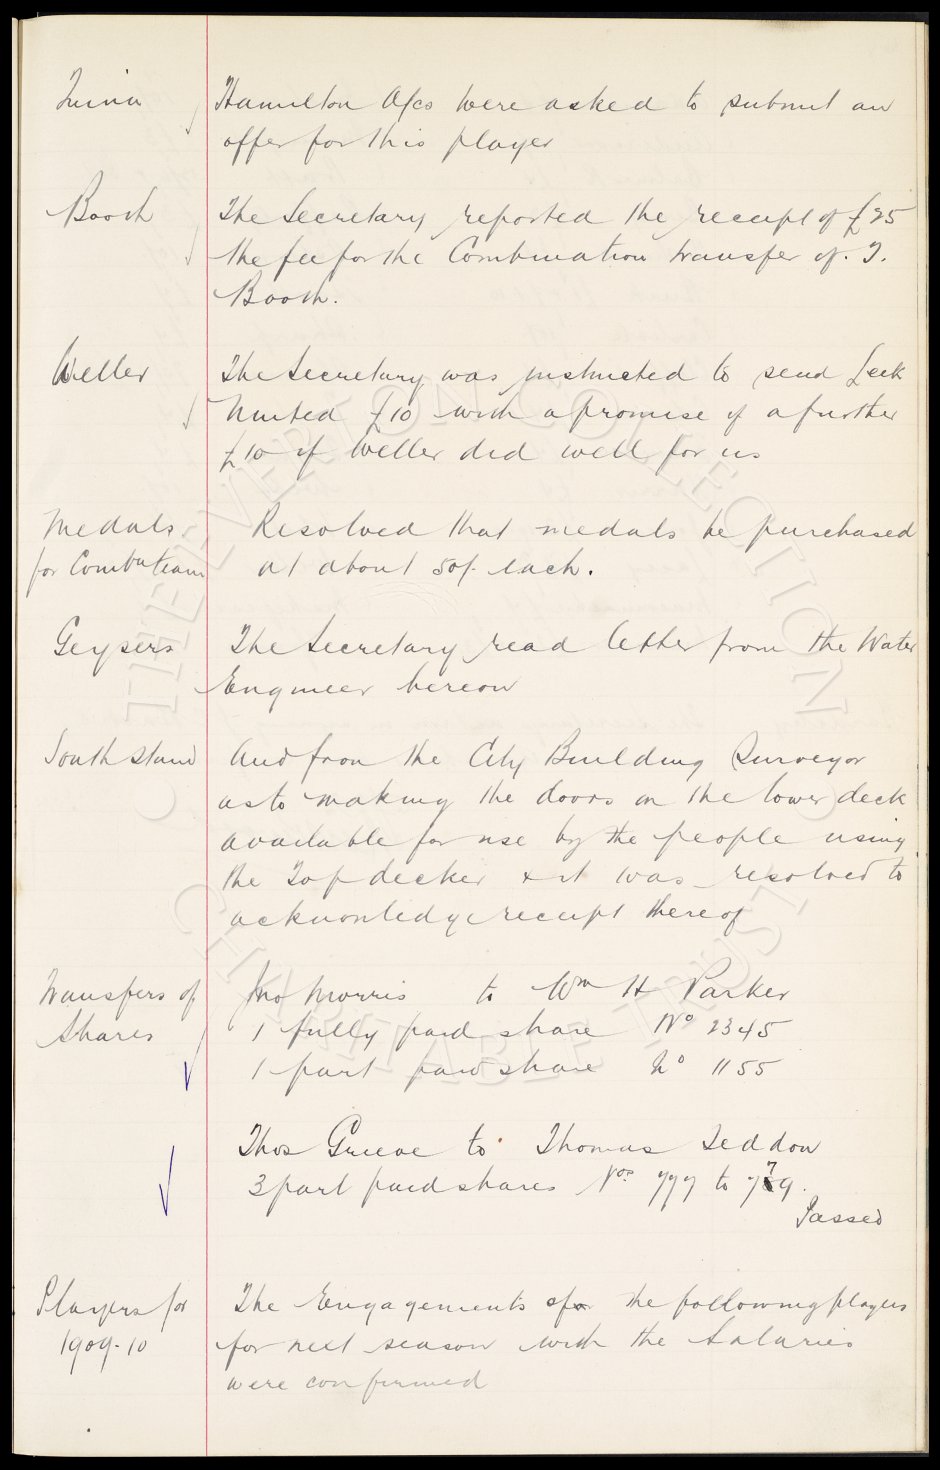 Hamilton A/cs were asked to submit an
offer for this player
Booth
The Secretary reported the receipt of £25
the fee for the Combination transfer of T.
Booth.
Weller
The Secretary was instructed to send Leek
United £10 with a promise of a further
£10 if Weller did well for us
Medals
for Combn team
Resolved that medals be purchased
at about 50/- each.
Geysers
The Secretary read letter from the Water
Engineer hereon
South Stand
And from the City Building Surveyor
as to making the doors on the lower deck
available for use by the people using
the Top decker & it was resolved to
acknowledge receipt thereof
Transfers of
Shares
Jno Morris to Wm H Parker
1 fully paid share No 2345
1 part paid share No 1155
Thos Grieve to Thomas Seddon
3 part paid shares Nos 777 to 779.
Passed
Players for
1909-10
The Engagements of the following players
for next season with the Salaries
were confirmed
THE EVERTON COLLECTION
CHARITABLE TRUST